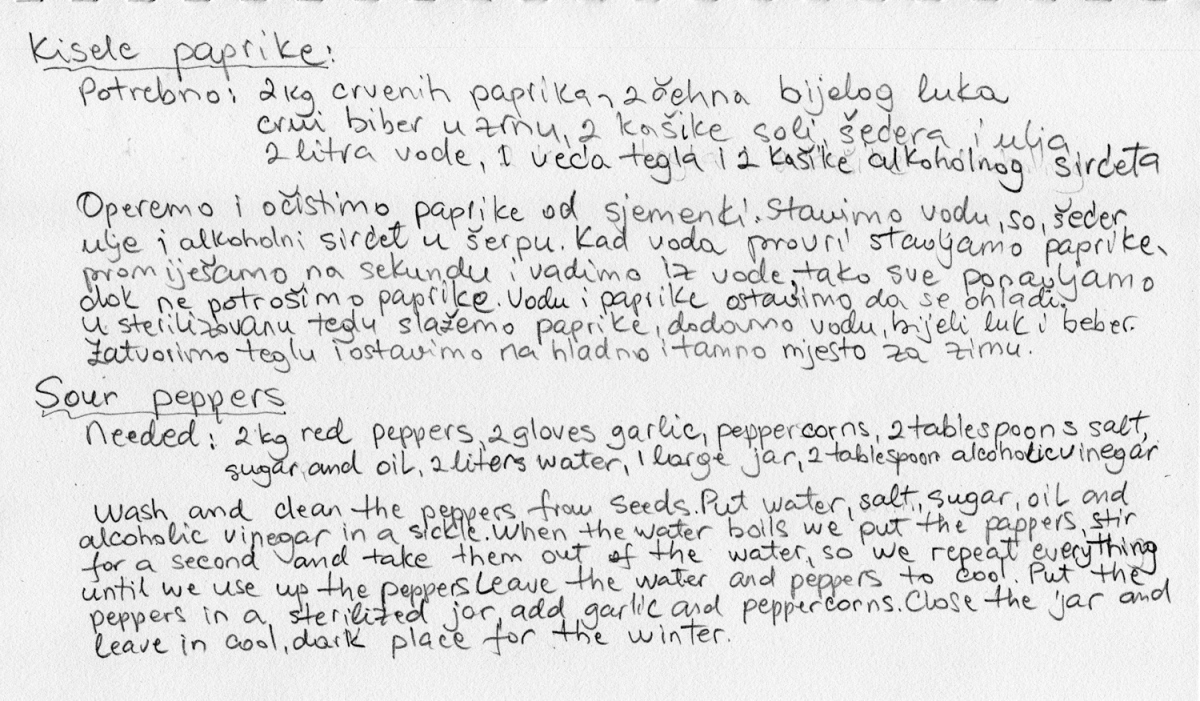 Kisele paprike:
Potrebno: 2 kg crvenih paprika, 2 čehna bijelog luka
crni biber u zrnu, 2 kašike soli, šećera i ulja
2 litra vode, 1 veća tegla i 2 kašike alkoholnog sirćeta
Operemo i očistimo paprike od sjemenki. Stavimo vodu, so, šećer
ulje i alkoholni sirćet u šerpu. Kad voda provri stavljamo paprike,
promiješamo na sekundu i vadimo iz vode, tako sve ponavljamo
dok ne potrošimo paprike. Vodu i paprike ostavimo da se ohladi.
U sterilizovanu teglu slažemo paprike, dodavno vodu, bijeli luk i beber.
Zatvorimo teglu i ostavimo na hladno i tamno mjesto za zimu.
Sour peppers
Needed: 2 kg red peppers, 2 gloves garlic, peppercorns, 2 tablespoons salt,
sugar, and oil, 2 liters water, 1 large jar, 2 tablespoon alcoholic vinegar
Wash and clean the peppers from seeds. Put water, salt, sugar, oil and
alcoholic vinegar in a sickle. When the water boils we put the pappers, stir
for a second and take them out of the water, so we repeat everything
until we use up the peppers Leave the water and peppers to cool. Put the
peppers in a sterilized jar, add garlic and peppercorns. Close the jar and
leave in cool, dark place for the winter.